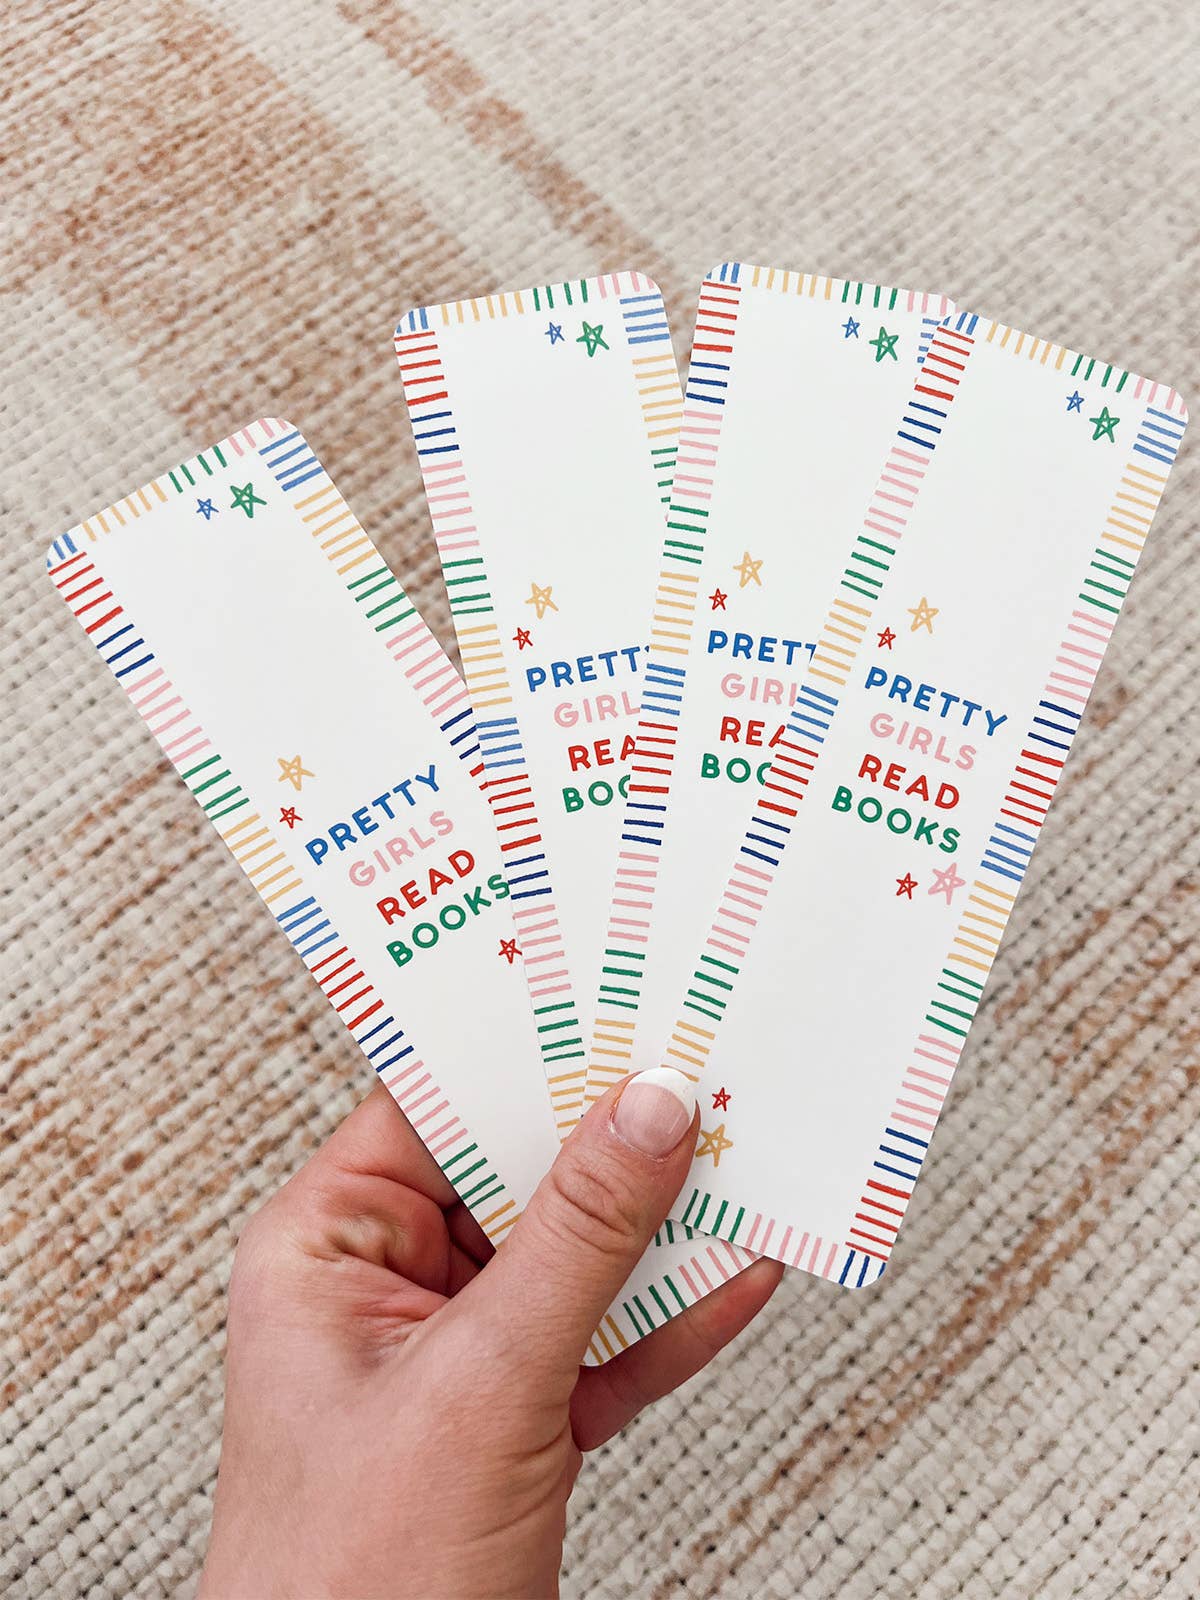 PRETTY
GIRLS
READ
BOOKS
PRETTY
GIRL
REA
BOO
PRETT
GIRL
REA
BOO
PRETTY
GIRLS
READ
BOOKS